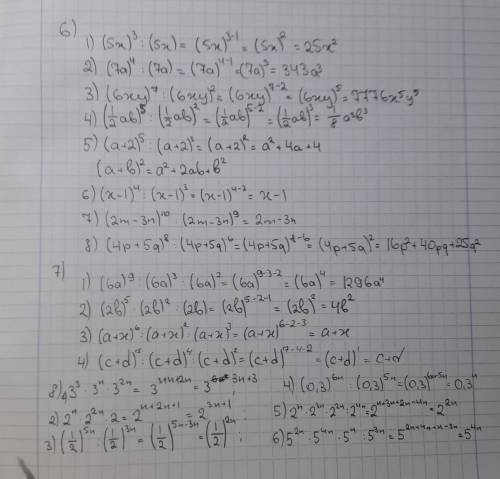 6)
1) (5x)³ : (5x) = (5x)³⁻¹ = (5x)² = 25x²
2) (7a)⁴ : (7a) = (7a)⁴⁻¹ = (7a)³ = 343a³
3) (6xy)⁷ : (6xy)² = (6xy)⁷⁻² = (6xy)⁵ = 7776x⁵y⁵
4) (1/2ab)⁵ : (1/2ab)² = (1/2ab)⁵⁻² = (1/2ab)³ = 1/8a³b³
5) (a+2)⁵ : (a+2)³ = (a+2)² = a² + 4a + 4
(a+b)² = a² + 2ab + b²
6) (x-1)⁴ : (x-1)³ = (x-1)⁴⁻³ = x-1
7) (2m-3n)¹⁰ : (2m-3n)⁹ = 2m-3n
8) (4p+5q)⁸ : (4p+5q)⁶ = (4p+5q)⁸⁻⁶ = (4p+5q)² = 16p² + 40pq + 25q²
7)
1) (6a)⁹ : (6a)³ : (6a)² = (6a)⁹⁻³⁻² = (6a)⁴ = 1296a⁴
2) (2b)⁵ : (2b)² : (2b) = (2b)⁵⁻²⁻¹ = (2b)² = 4b²
3) (a+x)⁶ : (a+x)² : (a+x)³ = (a+x)⁶⁻²⁻³ = a+x
4) (c+d)⁷ : (c+d)⁴ : (c+d)² = (c+d)⁷⁻⁴⁻² = (c+d)¹ = c+d
8) 1) 3³ · 3ⁿ · 3²ⁿ = 3³⁺ⁿ⁺²ⁿ = 3³ⁿ⁺³ 4) (0,3)⁶ⁿ : (0,3)⁵ⁿ = (0,3)⁶ⁿ⁻⁵ⁿ = 0,3ⁿ
2) 2ⁿ · 2²ⁿ · 2 = 2ⁿ⁺²ⁿ⁺¹ = 2³ⁿ⁺¹; 5) 2ⁿ · 2³ⁿ · 2²ⁿ : 2⁴ⁿ = 2ⁿ⁺³ⁿ⁺²ⁿ⁻⁴ⁿ = 2²ⁿ
3) (1/2)⁵ⁿ : (1/2)³ⁿ = (1/2)⁵ⁿ⁻³ⁿ = (1/2)²ⁿ; 6) 5²ⁿ · 5⁴ⁿ · 5ⁿ : 5³ⁿ = 5²ⁿ⁺⁴ⁿ⁺ⁿ⁻³ⁿ = 5⁴ⁿ